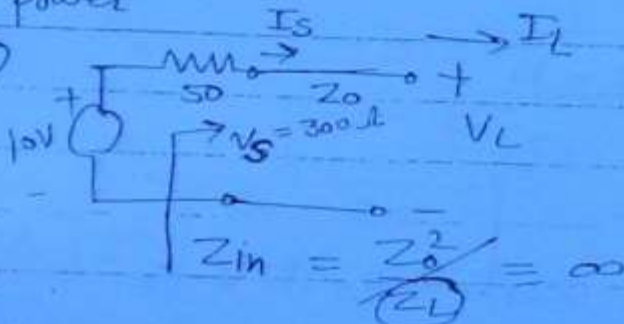 power
Is
IL
50
Zo
+
+
10V
Vs = 300 Ω
VL
-
-
Zin = Zo² / ZL = ∞